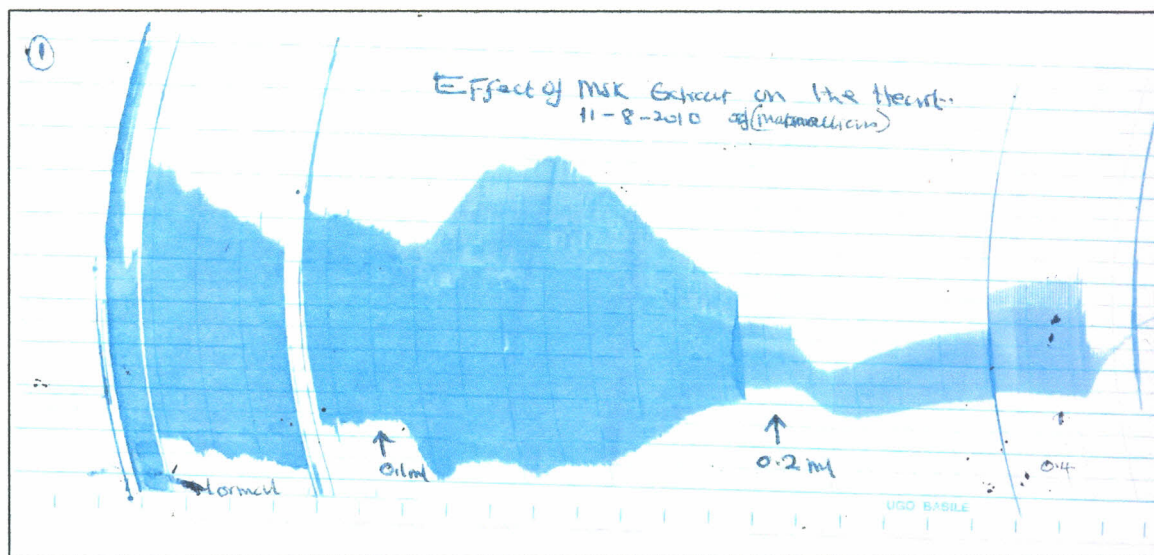 1
Effect of MSK Extract on the Heart.
11-8-2010 of
Normal
0.1ml
0.2 ml
0.4
UGO BASILE